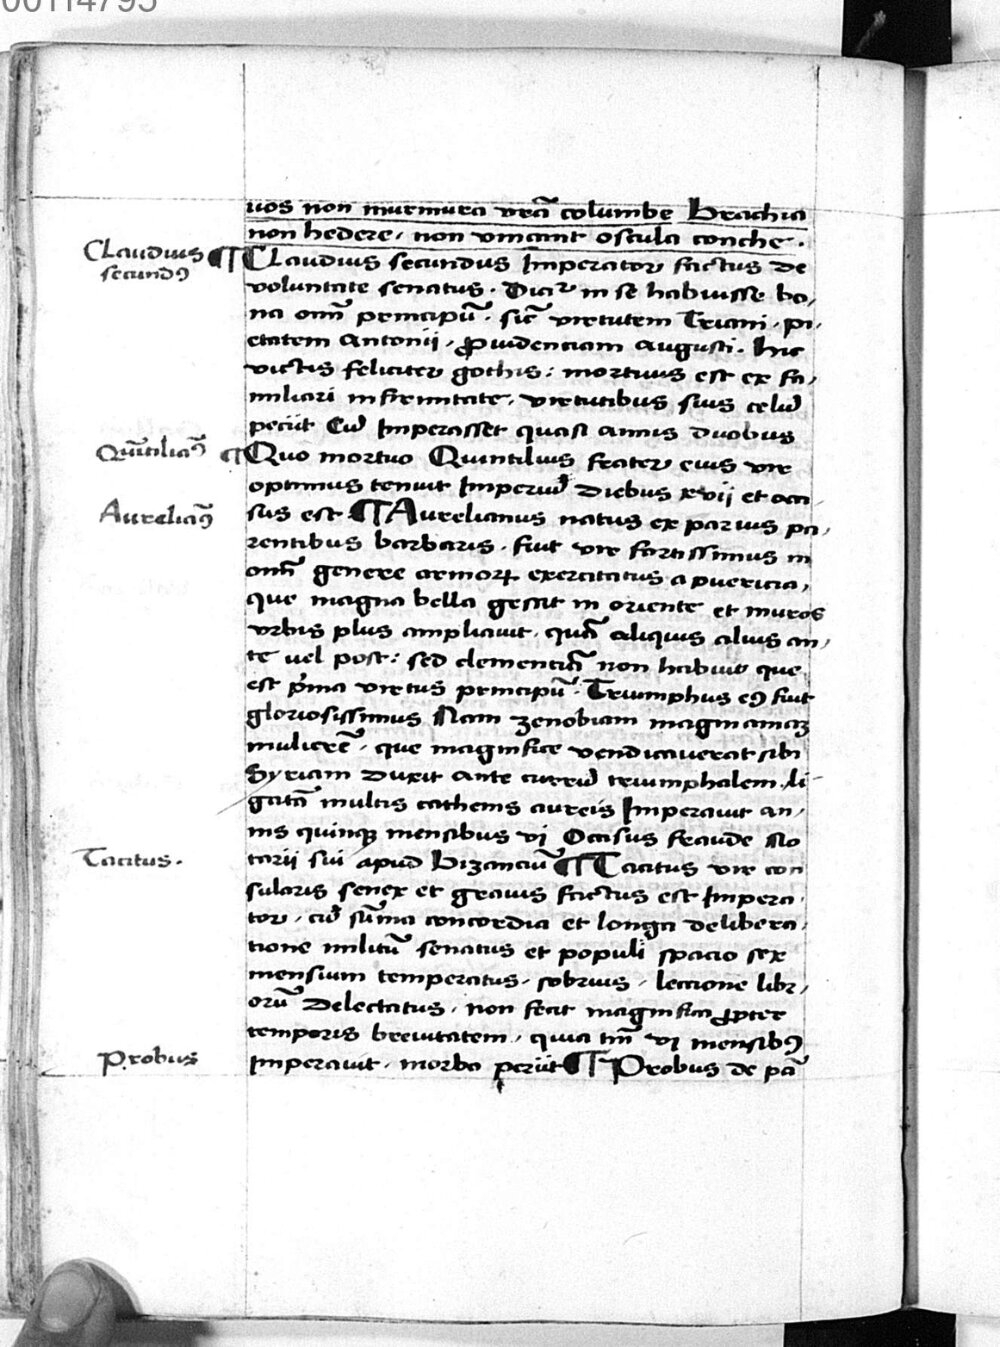 00114795
uos non murmura vrā columbe Brachia
non hedere, non vincant oscula conche.
Claudius
secundꝰ
¶ Claudius secundus Imperator factus de
voluntate senatus. Dicit̃ in se habuisse bo,
na om̄ principū. sic̄ virtutem Traiani, pi,
etatem Antonii, ꝓuidenciam augusti. hic
victis feliciter gothis: mortuus est ex fa,
miliari infirmitate, virtutibus suis celū
peciit Cū Imperasset quasi annis duobus
Quītiliaꝰ
¶ Quo mortuo Quintilius frater eius vir
optimus tenuit Imperiū diebus xvii et occi,
Aureliaꝰ
sus est ¶ Aurelianus natus ex paruis pa,
rentibus barbaris. fuit vir fortissimus in
om̄ genere armoꝝ exercitatus a puericia,
que magna bella gessit in oriente et muros
vrbis plus ampliauit, quā aliquis alius an,
te uel post: sed clementiā non habuit que
est p̃ma virtus principū. Triumphus eꝰ fuit
gloriosissimus Nam zenobiam magnanimaȝ
mulierē, que magnifice vendicauerat sibi
Syriam duxit ante currū triumphalem, li
gatā multis cathenis aureis Imperauit an,
nis quinqȝ mensibus vj Occisus fraude No
Tacitus.
tarii sui apud Bizanciū ¶ Tacitus vir con
sularis senex et grauis factus est Impera,
tor, cū sūma concordia et longa delibera,
tione militū senatus et populi spacio sex
mensium temperatus, sobrius, leccione libr,
orū delectatus, non fecit magnifica ꝓpter
temporis breuitatem, quia tm̄ vj mensibꝰ
Probus
Imperauit, morbo periit ¶ Probus de pā